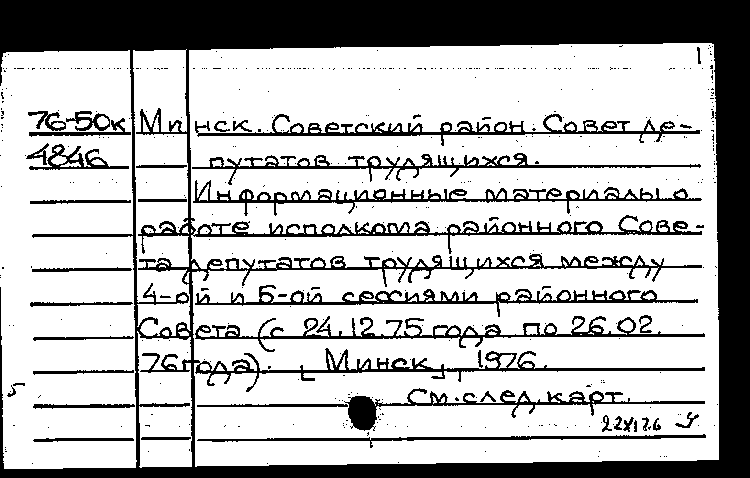 1
76-50к Минск. Советский район. Совет де-
4846 путатов трудящихся.
Информационные материалы о
работе исполкома районного Сове-
та депутатов трудящихся между
4-ой и 5-ой сессиями районного
Совета (с 24.12.75 года по 26.02.
76 года). [Минск], 1976.
См. след. карт.